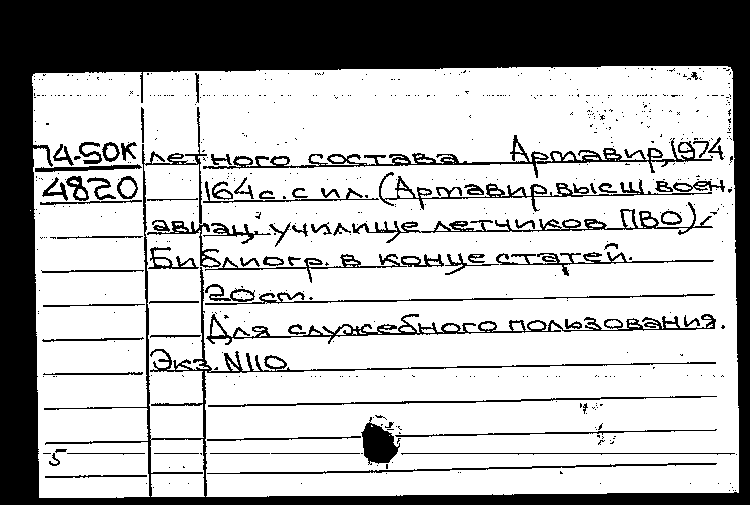 74-50К летного состава. Армавир, 1974.
4820 164 с. с ил. (Армавир. высш. воен.
авиац. училище летчиков ПВО).
Библиогр. в конце статей.
20 см.
Для служебного пользования.
Экз. N110
5